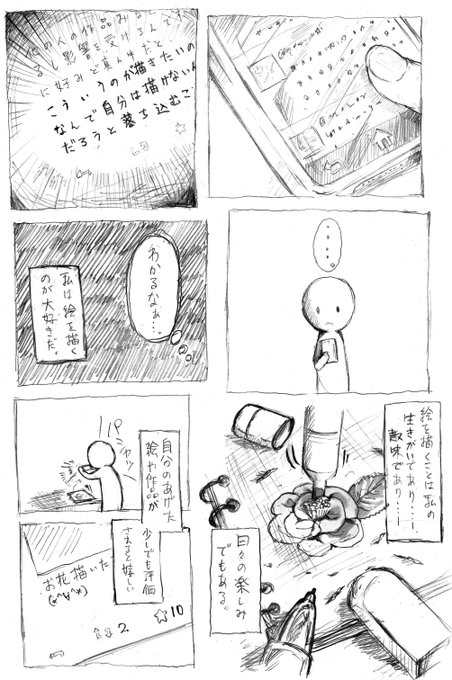 の作品みる
るし影響を受けるんで
に好みど真ん中だと
こういうのが描きたいの
なんで自分は描けないん
だろうと落ち込むこ
・・・・
わかるなぁ…。
私は絵を描く
のが大好きだ。
絵を描くことは私の
生きがいであり…、
趣味であり…、
日々の楽しみ
でもある。
パシャッ
自分のあげた
絵や作品が
少しでも評価
されると嬉しい
お花描いた
(*^∀^*)
2 ☆10